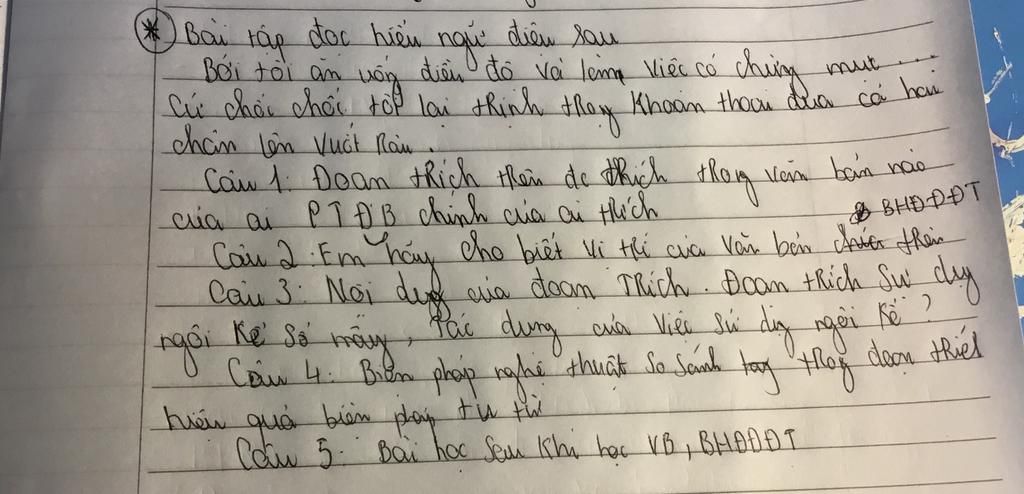 * Bài tập đọc hiểu ngữ điệu sau
Bởi tôi ăn uống điều độ và làm việc có chừng mực ...
Cứ chốc chốc tôi lại trịnh trọng khoan thai đưa cả hai
chân lên vuốt râu.
Câu 1: Đoạn trích trên đc trích trong văn bản nào
của ai PTĐB chính của ai trích
Câu 2: Em hãy cho biết vị trí của văn bản trên BHĐĐĐT
Câu 3: Nội dung của đoạn Trích. Đoạn trích sử dụng
ngôi kể số mấy, tác dụng của việc sử dg ngôi kể?
Câu 4: Biện pháp nghệ thuật So Sánh trong đoạn
hiệu quả biện pháp tu từ
Câu 5: Bài học sau khi học VB, BHĐĐĐT